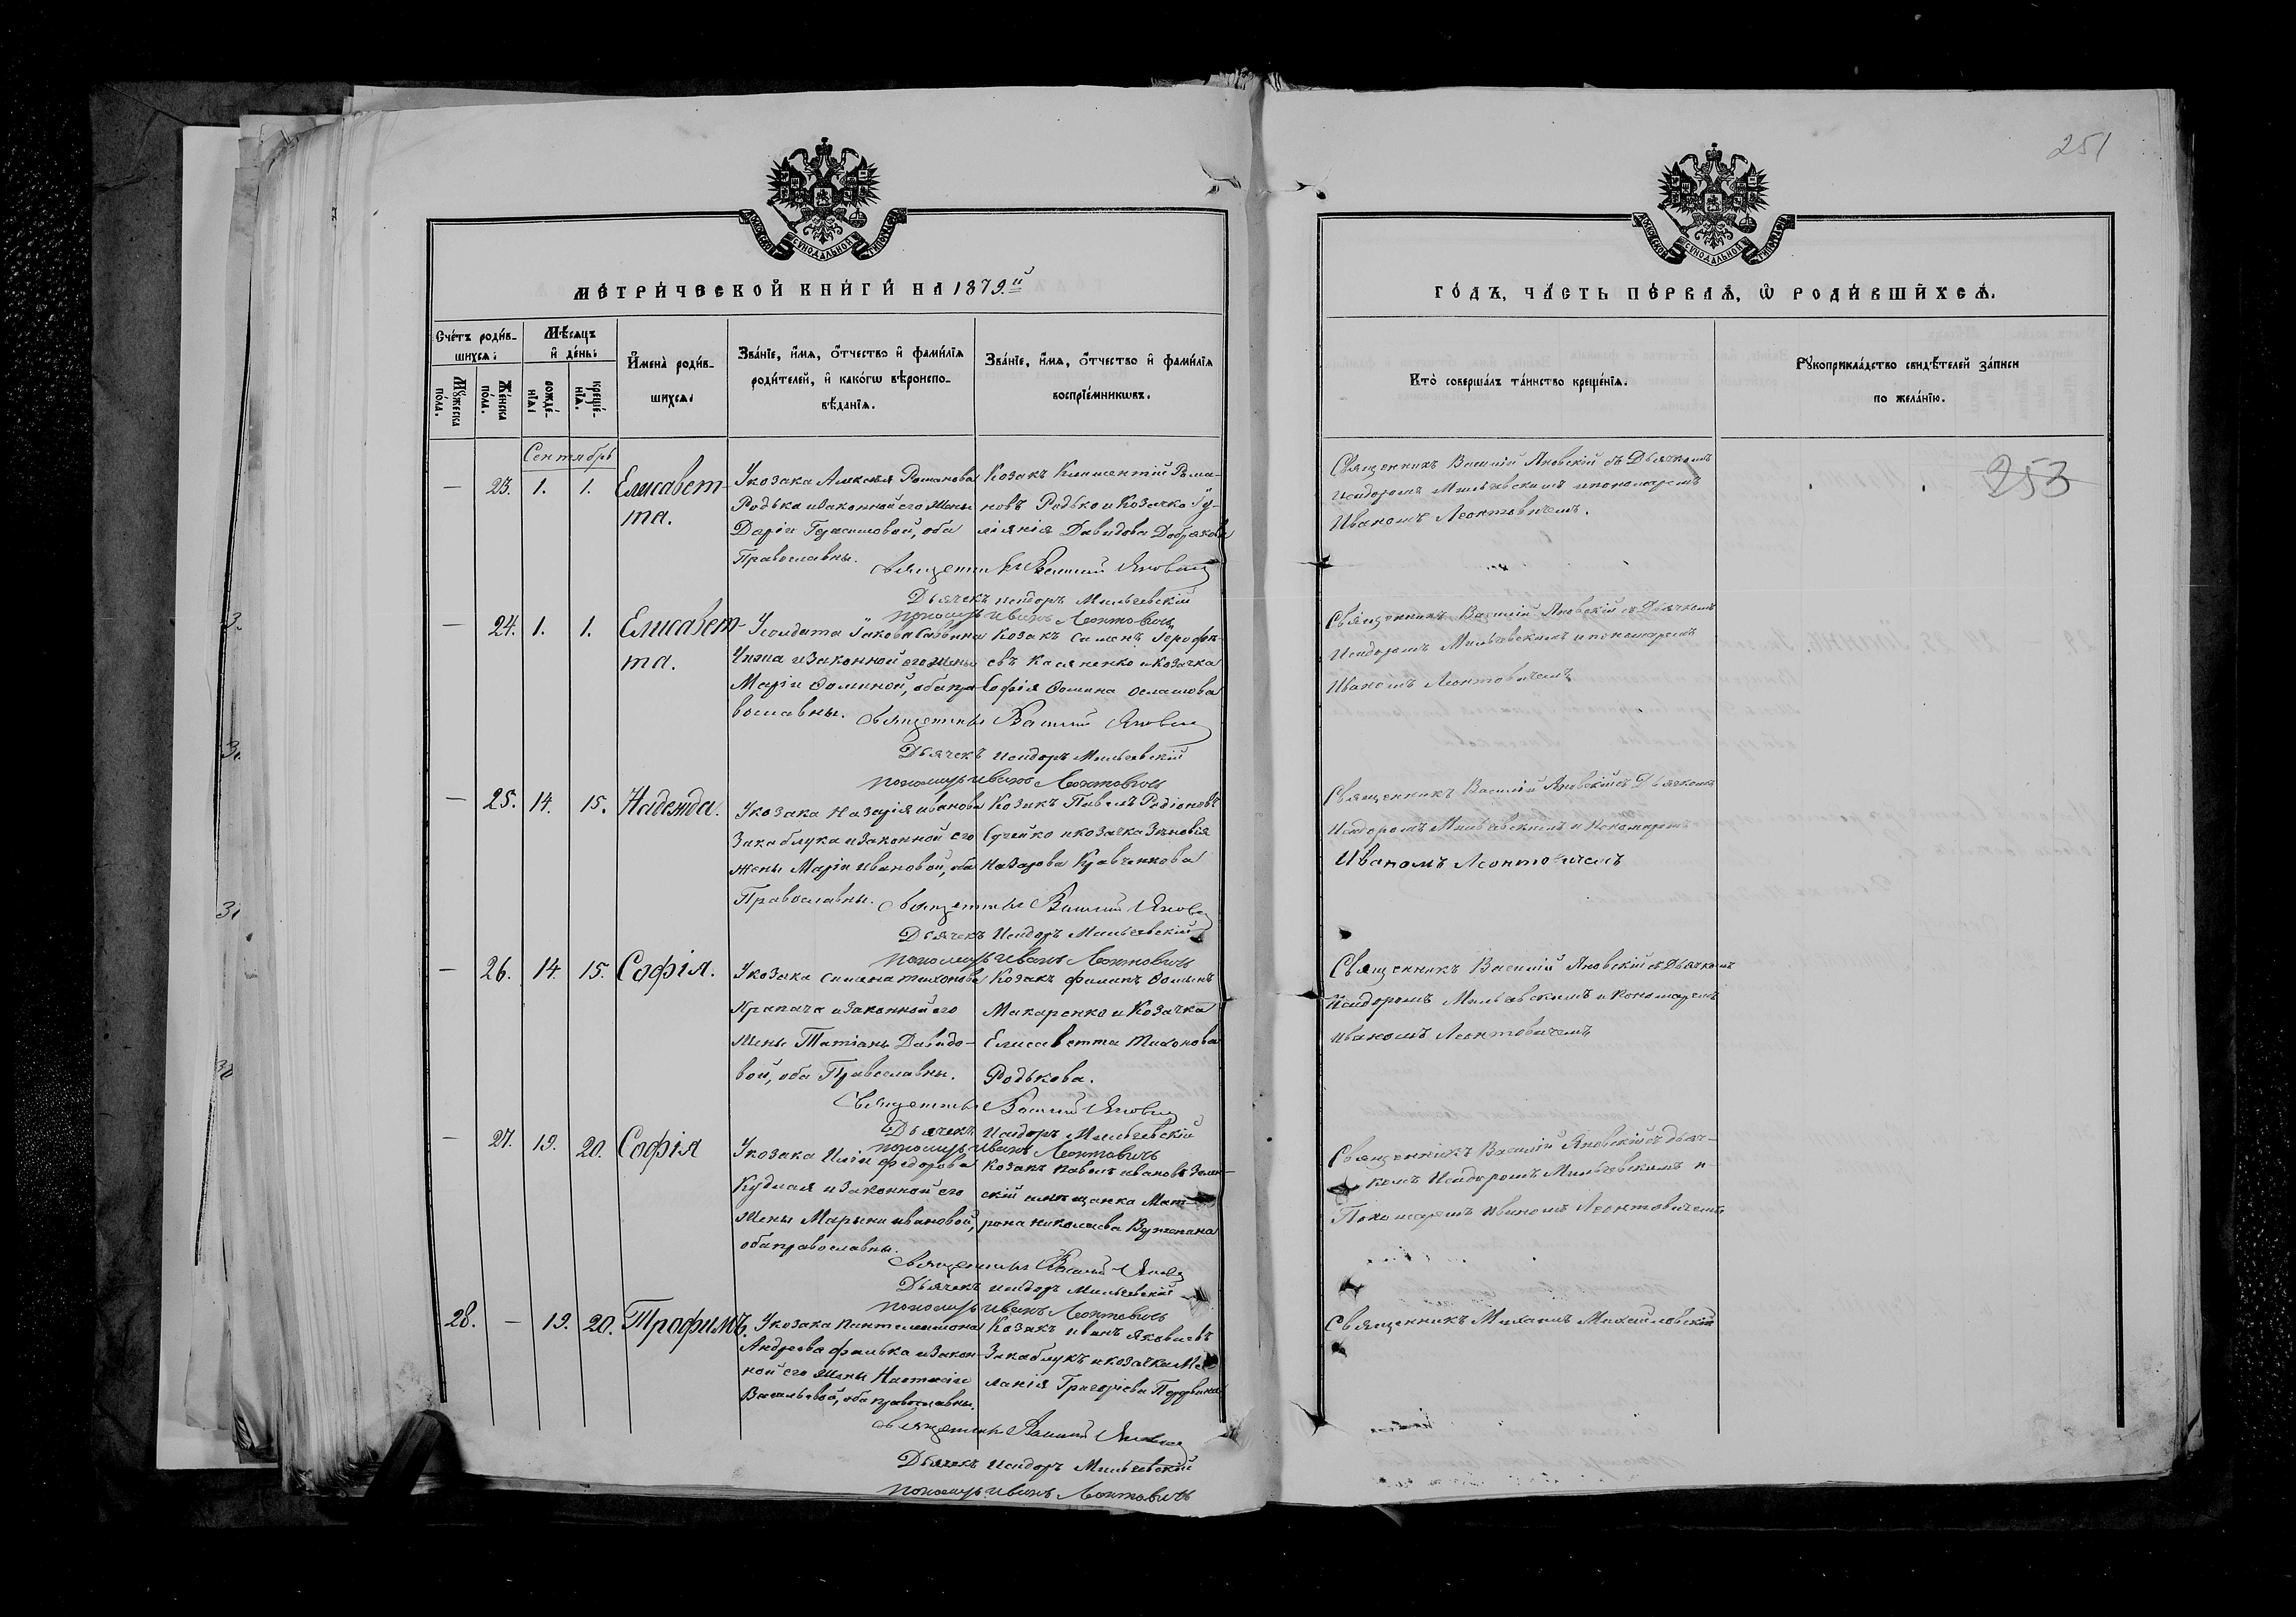 251
МОСКОВСКОЙ СѴНОДАЛЬНОЙ ТИПОГРАФІИ
МОСКОВСКОЙ СѴНОДАЛЬНОЙ ТИПОГРАФІИ
МЕТРИЧЕСКОЙ КНИГИ НА 1879.й
ГОДЪ, ЧАСТЬ ПЕРВАЯ, Ѡ РОДИВШИХСЯ.
Счетъ родив-
шихся:
Мужеска
пола.
Женска
пола.
Мѣсяцъ
и день:
рожде-
нія:
креще-
нія.
Имена родив-
шихся:
Званіе, имя, отчество и фамилія
родителей, и какогѡ вѣроиспо-
вѣданія.
Званіе, имя, отчество и фамилія
воспріемникѡвъ.
Кто совершалъ таинство крещенія.
Рукоприкладство свидѣтелей записи
по желанію.
Сентябрь
253
— 23. 1. 1. Елисавет-
та.
У козака Алексѣя Романова
Родька и законной его жены
Даріи Герасимовой, оба
Православны.
Козакъ Климентій Рома-
новъ Родько и Козачка Іу-
ліянія Давидова
Священникъ Василій Яновскій
Дьячекъ Исидоръ Мильчевскій
пономарь Иванъ Леонтовичъ
Священникъ Василій Яновскій съ Дьячкомъ
Исидоромъ Мильчевскимъ и пономаремъ
Иваномъ Леонтовичемъ.
— 24. 1. 1. Елисавет-
та.
У солдата Іакова Саввина
и законной его жены
Маріи Ѳоминой, оба пра-
вославны.
Козакъ Симеонъ Іерофе-
евъ Касяненко и козачка
Софія Ѳомина
Священникъ Василій Яновскій
Дьячекъ Исидоръ Мильчевскій
пономарь Иванъ Леонтовичъ
Священникъ Василій Яновскій съ Дьячкомъ
Исидоромъ Мильчевскимъ и пономаремъ
Иваномъ Леонтовичемъ
— 25. 14. 15. Надежда.
У козака Назарія Иванова
Закаблука и законной его
жены Маріи Ивановой, оба
Православны.
Козакъ Павелъ Родіоновъ
и козачка Зѣновія
Назарова Кравченкова
Священникъ Василій Яновскій
Дьячекъ Исидоръ Мильчевскій
пономарь Иванъ Леонтовичъ
Священникъ Василій Яновскій съ Дьячкомъ
Исидоромъ Мильчевскимъ и Пономаремъ
Иваномъ Леонтовичемъ
— 26. 14. 15. Софія.
У козака Симеона Тихонова
и законной его
жены Татіаны Давидо-
вой, оба Православны.
Козакъ Филипъ Ѳоминъ
Макаренко и Козачка
Елисаветта Тихонова
Родькова.
Священникъ Василій Яновскій
Дьячекъ Исидоръ Мильчевскій
пономарь Иванъ Леонтовичъ
Священникъ Василій Яновскій съ Дьячкомъ
Исидоромъ Мильчевскимъ и Пономаремъ
Иваномъ Леонтовичемъ
— 27. 19. 20. Софія
У козака Иліи Федорова
Кудлая и законной его
жены Марыны Ивановой,
оба православны.
Козакъ Павелъ Ивановъ
скій и мѣщанка Мат-
рона Николаева
Священникъ Василій Яновскій
Дьячекъ Исидоръ Мильчевскій
пономарь Иванъ Леонтовичъ
Священникъ Василій Яновскій съ Дьяч-
комъ Исидоромъ Мильчевскимъ и
Пономаремъ Иваномъ Леонтовичемъ
28. — 19. 20. Трофимъ.
У козака Пантелеимона
Андреева Филька и закон-
ной его жены Настасіи
Васильевой, оба православны.
Козакъ Иванъ Яковлевъ
Закаблукъ и козачка Ме-
ланія Григоріева
Священникъ Василій Яновскій
Дьячекъ Исидоръ Мильчевскій
пономарь Иванъ Леонтовичъ
Священникъ Михаилъ Михайловскій